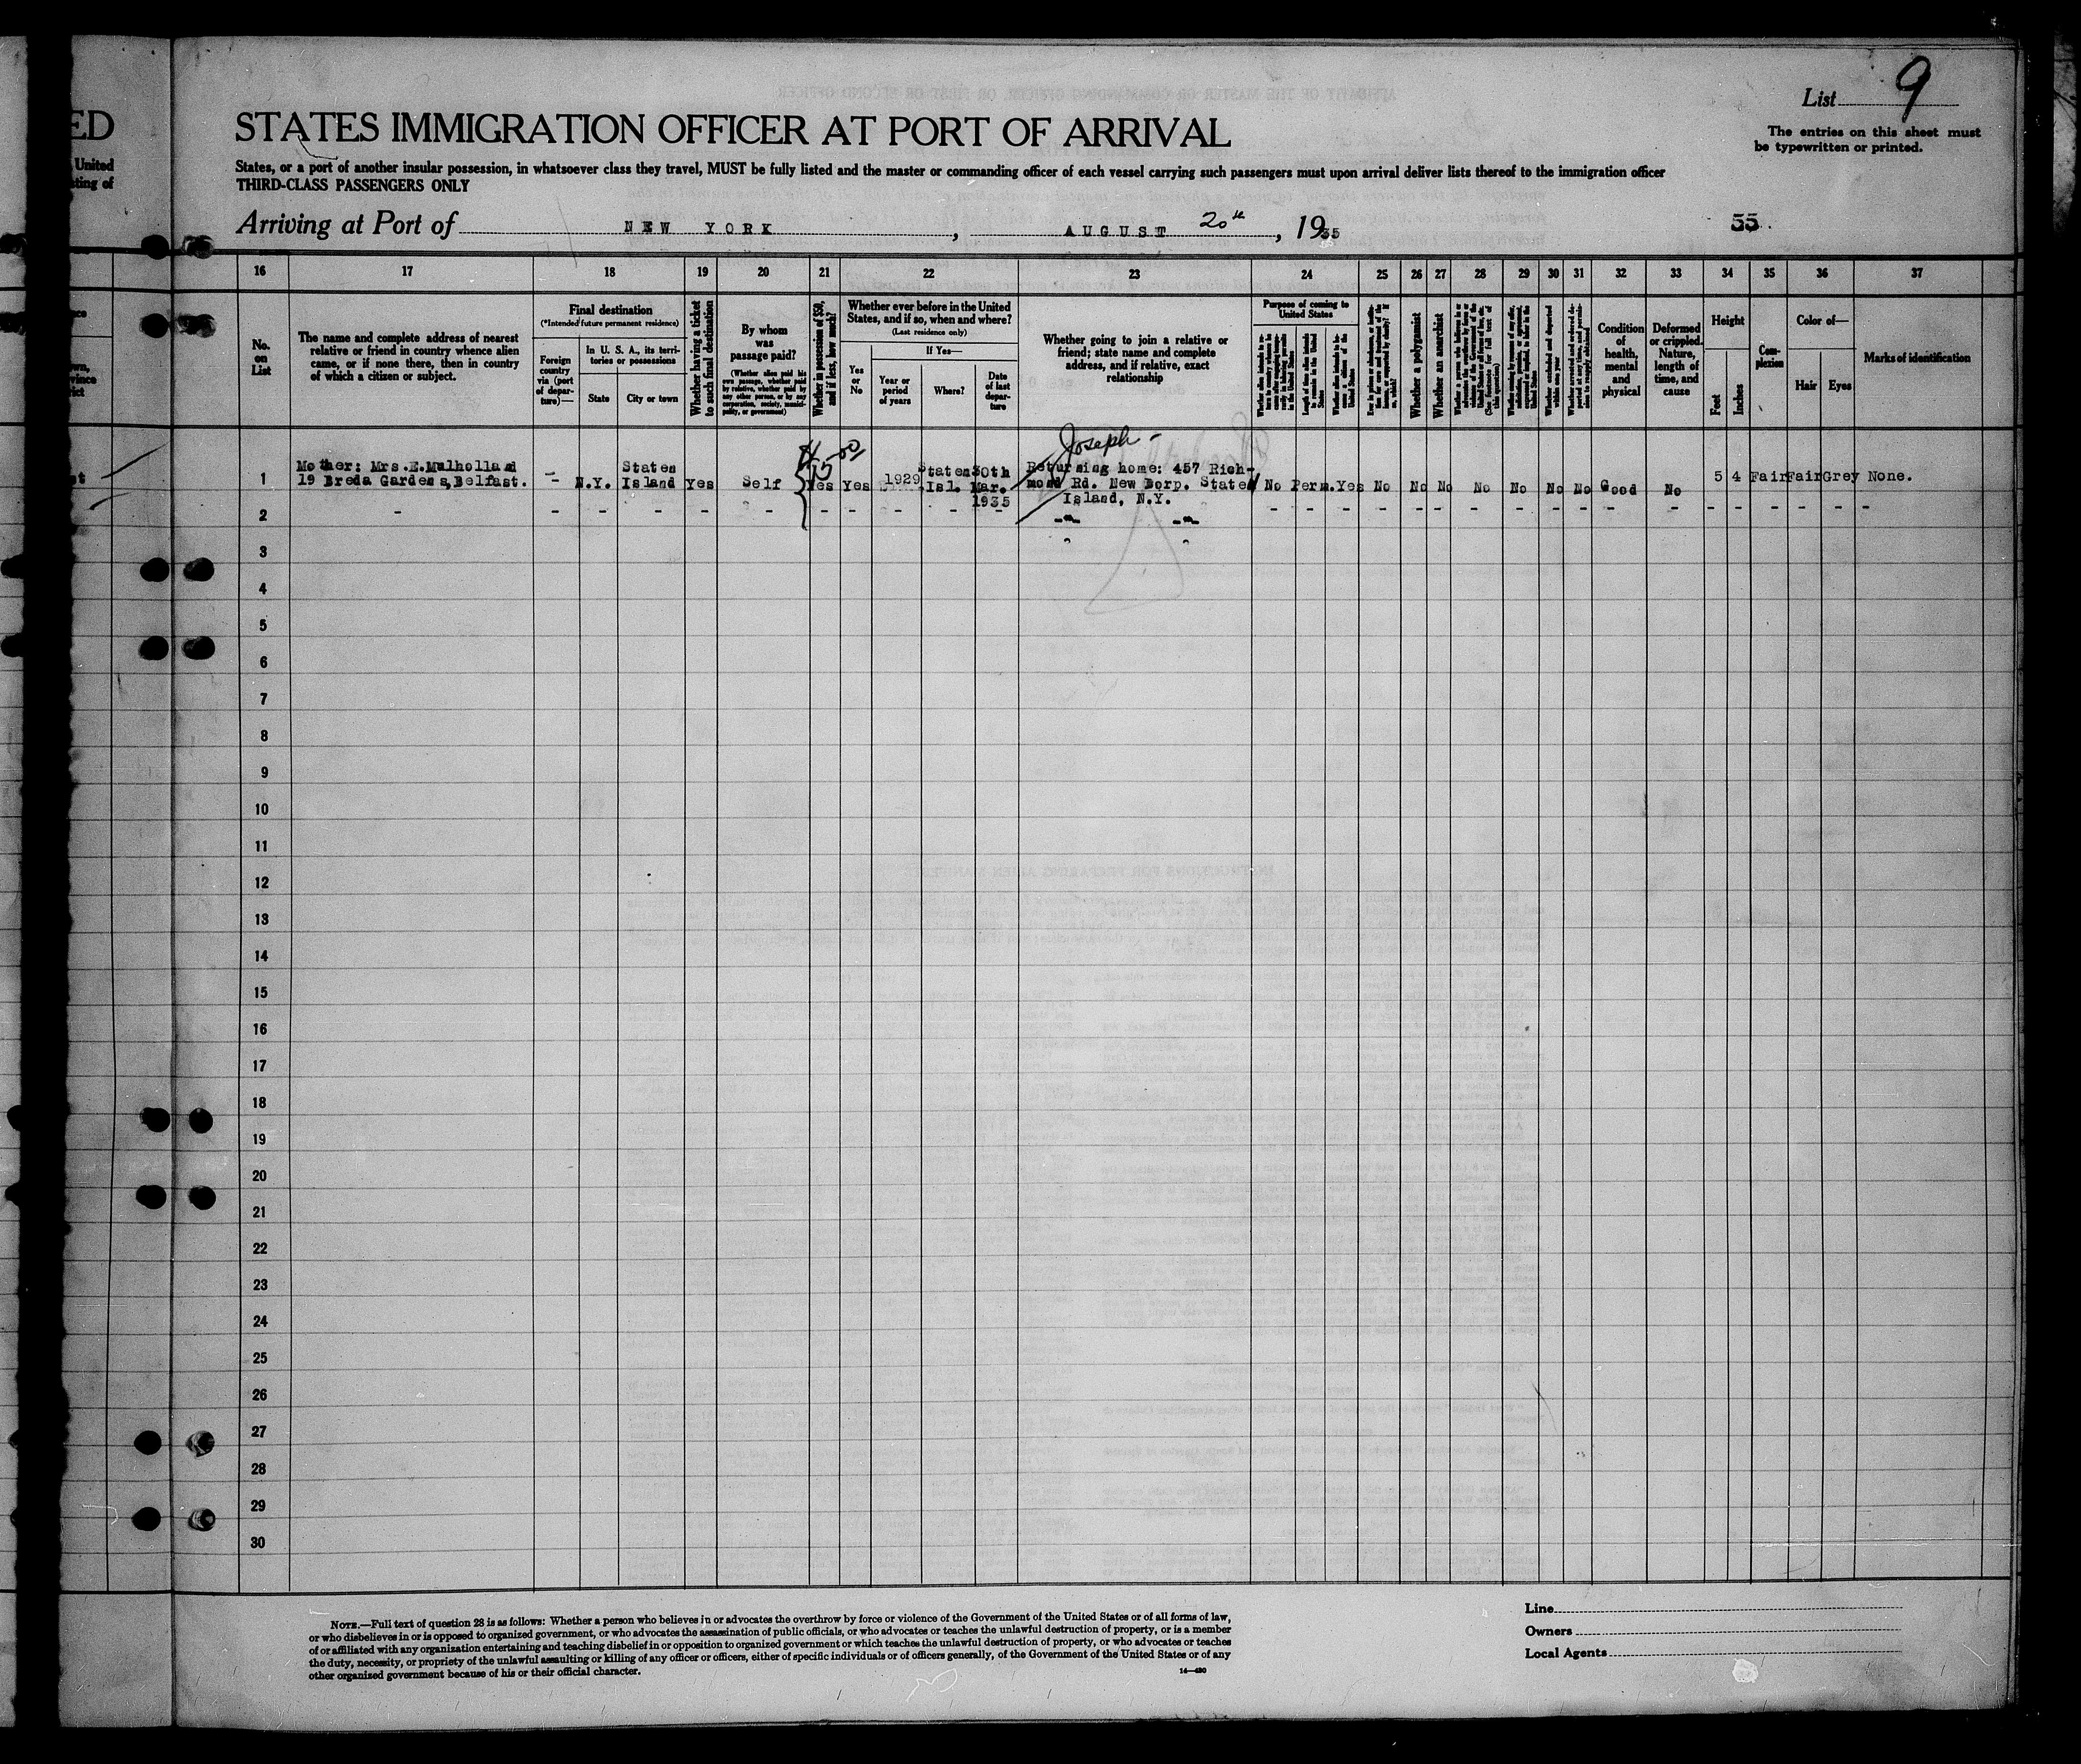 ED
United
sting of
List 9
The entries on this sheet must
be typewritten or printed.
STATES IMMIGRATION OFFICER AT PORT OF ARRIVAL
States, or a port of another insular possession, in whatsoever class they travel, MUST be fully listed and the master or commanding officer of each vessel carrying such passengers must upon arrival deliver lists thereof to the immigration officer
THIRD-CLASS PASSENGERS ONLY
Arriving at Port of NEW YORK, AUGUST 20th, 1935
55
16 17 18 19 20 21 22 23 24 25 26 27 28 29 30 31 32 33 34 35 36 37
No.
on
List
The name and complete address of nearest
relative or friend in country whence alien
came, or if none there, then in country
of which a citizen or subject.
Final destination
(*Intended future permanent residence)
Foreign
country
via (port
of depar-
ture)—
In U. S. A., its terri-
tories or possessions
State
City or town
Whether having a ticket
to such final destination
By whom
was
passage paid?
(Whether alien paid his
own passage, whether paid
by relative, whether paid by
any other person, or by any
corporation, society, munici-
pality, or government)
Whether in possession of $50,
and if less, how much?
Whether ever before in the United
States, and if so, when and where?
(Last residence only)
Yes
or
No
If Yes—
Year or
period
of years
Where?
Date
of last
depar-
ture
Whether going to join a relative or
friend; state name and complete
address, and if relative, exact
relationship
Purpose of coming to
United States
Length of time alien intends
to remain in the United
States
Whether alien intends to be-
come a citizen of the
United States
Whether a polygamist
Whether an anarchist
Condition
of
health,
mental
and
physical
Deformed
or crippled.
Nature,
length of
time, and
cause
Height
Feet
Inches
Com-
plexion
Color of—
Hair
Eyes
Marks of identification
$15.00
Joseph -
1 Mother: Mrs.E.Mulholland
19 Breda Gardens, Belfast.
- N.Y.
Staten
Island
Yes Self Yes Yes 1929
Staten
Isl.
30th
Mar.
1935
Returning home: 457 Rich-
mond Rd. New Dorp. Staten
Island, N.Y.
No Perm. Yes No No No No No No No Good No 5 4 Fair Fair Grey None.
2 - - - - - - - - - - - -"- -"- - - - - - - - - - - - - - - - - - -
3
4
5
6
7
8
9
10
11
12
13
14
15
16
17
18
19
20
21
22
23
24
25
26
27
28
29
30
NOTE.—Full text of question 28 is as follows: Whether a person who believes in or advocates the overthrow by force or violence of the Government of the United States or of all forms of law,
or who disbelieves in or is opposed to organized government, or who advocates the assassination of public officials, or who advocates or teaches the unlawful destruction of property, or is a member
of or affiliated with any organization entertaining and teaching disbelief in or opposition to organized government or which teaches the unlawful destruction of property, or who advocates or teaches
the duty, necessity, or propriety of the unlawful assaulting or killing of any officer or officers, either of specific individuals or of officers generally, of the Government of the United States or of any
other organized government because of his or their official character.
14—430
Line
Owners
Local Agents